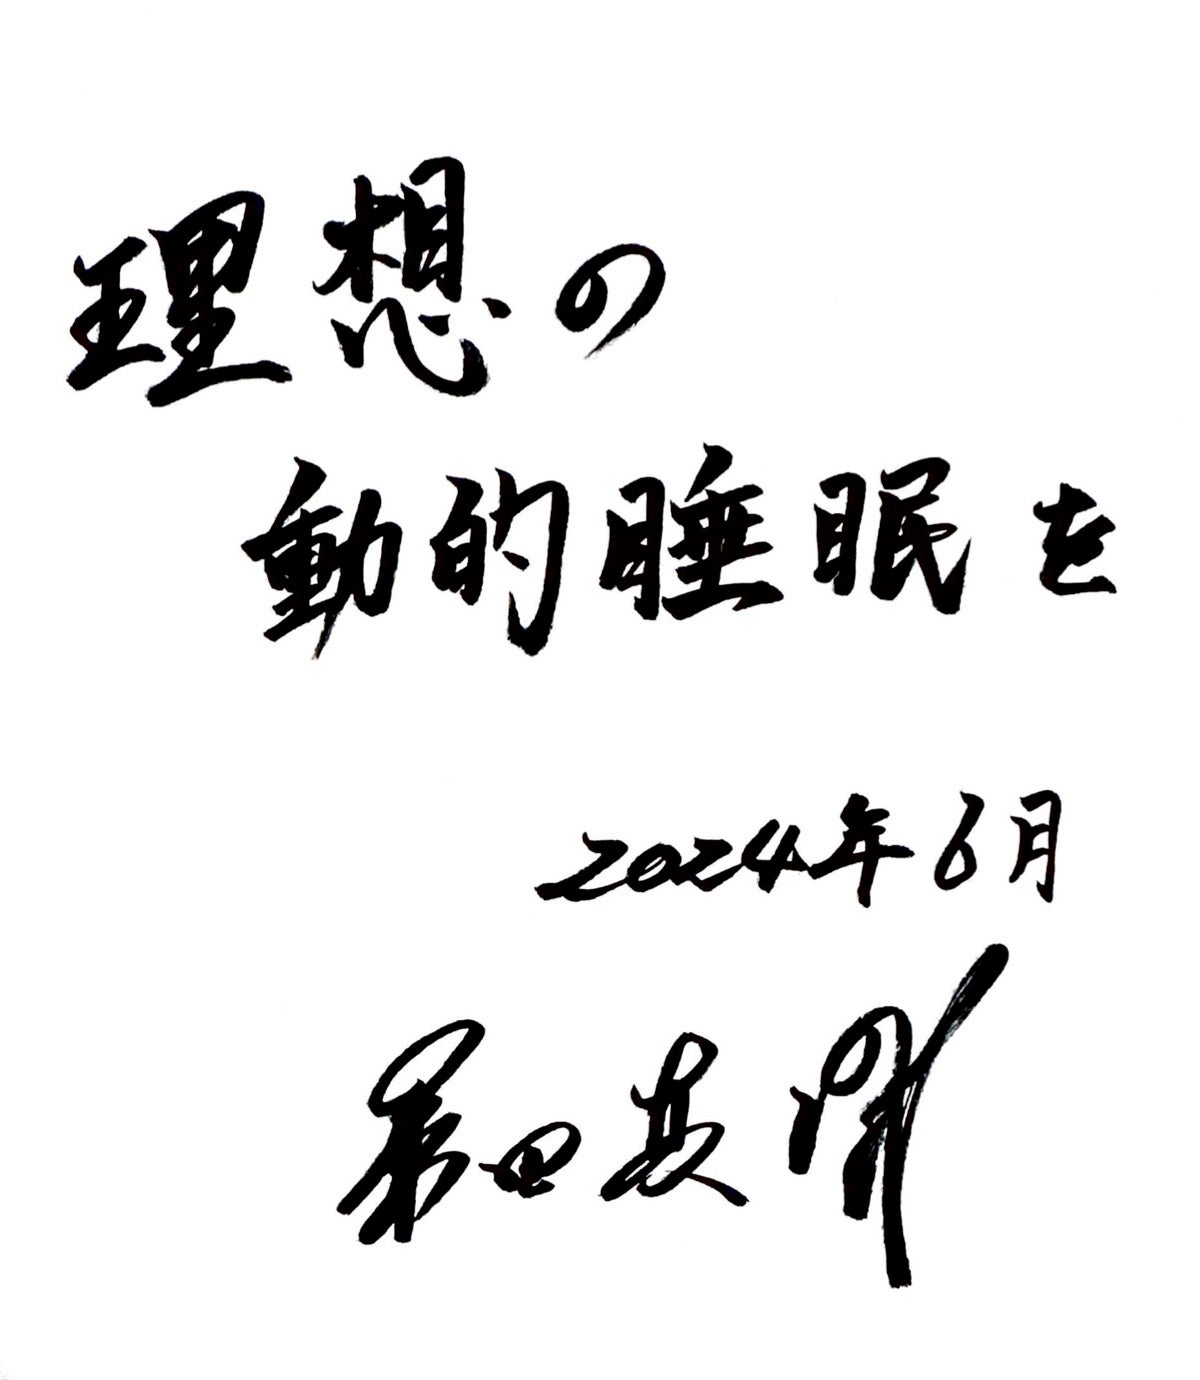 理想の
動的睡眠を
2024年6月